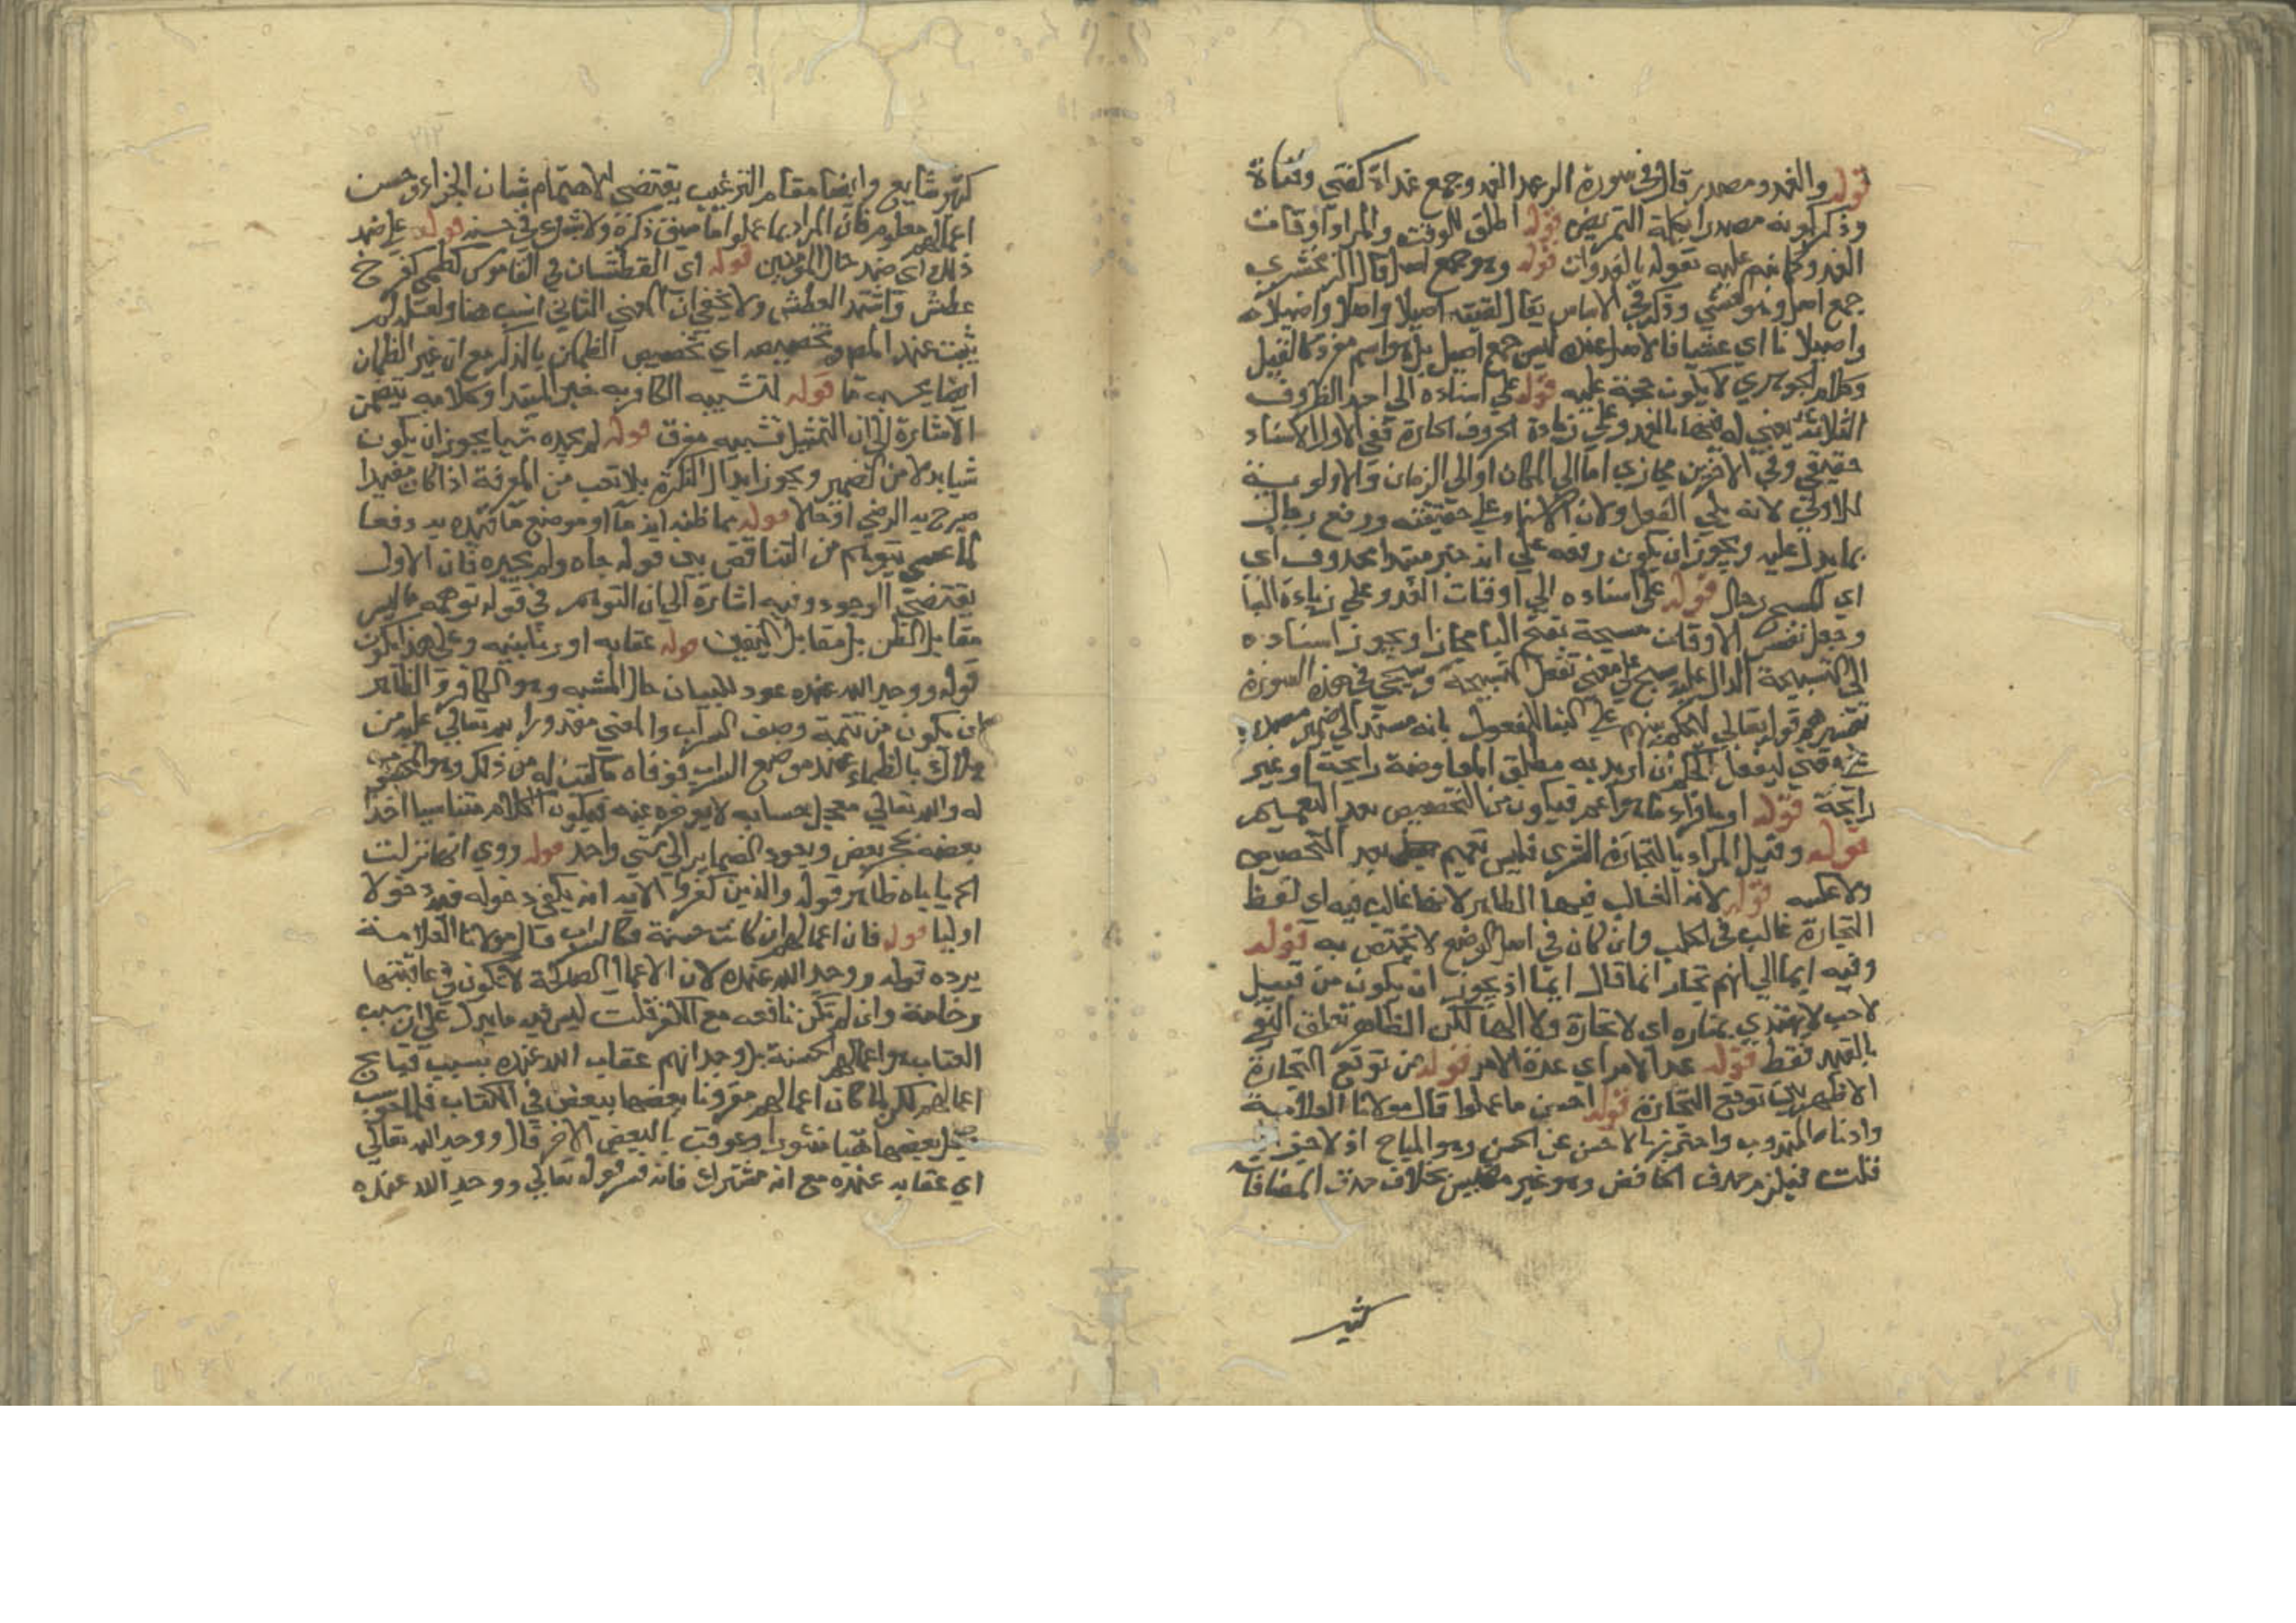 قوله والغدو مصدر قال في سورة الرعد الغدو جمع غداة كفتى وفتاة
وذكر كونه مصدرا بكلمة التمريض قوله اطلق للوقت والمراد اوقات
الغدو كما نبه عليه بقوله بالغدوات قوله وهو جمع اصل قال الزمخشري
جمع اصل وهو العشي وذكر في الاساس يقال لقيته اصيلا واصلا واصيلاله
واصيلانا اي عشيا فالاصل عنده ليس جمع اصيل بل هو اسم مفرد كالقبيل
وكلام الجوهري لا يكون حجة عليه قوله على اسناده الى احد الظروف
الثلاثة يعني له فيها بالغدو وعلى زيادة الحروف الجارة ففي الاول الاسناد
حقيقي وفي الاخرين مجازي اما الى المكان او الى الزمان والاولوية
للاول لانه يلي الفعل ولان الاسناد على حقيقته ورفع رجال
بما يدل عليه ويجوز ان يكون رفعه على انه خبر مبتدا محذوف اي
اي المسبح رجال قوله على اسناده الى اوقات الغدو على زيادة البا
وجعل نفس الاوقات مسبحة بفتح البا مجازا ويجوز اسناده
الى التسبيحة الدال عليه يسبح على معنى تفعل التسبيحة وسيجي في هذه السورة
تفسير قوله تعالى ليحكم بينهم على البنا للمفعول بانه مسند الى ضمير مصدره
على معنى ليفعل الحكم ان اريد به مطلق المعاوضة رابحة او غير
رابحة قوله او بافراد ما هو اعم فيكون من التخصيص بعد التعميم
قوله وقيل المراد بالتجارة الشرى فليس تعميم بعد التخصيص
ولا عكسه قوله لانه الغالب فيها الظاهر لانها غالب فيه اي لفظ
التجارة غالب في الجلب وان كان في اصل الوضع لا يختص به قوله
وفيه ايما الى انهم تجار انما قال ايما اذ يجوز ان يكون من قبيل
لاحب لا يهتدي بمناره اي لا تجارة ولا الها لكن الظاهر تعلق النفي
بالقيد فقط قوله عد الامر اي عدة الامر قوله من توقع التجارة
الاظهر توقع التجارة قوله احسن ما عملوا قال مولانا العلامة
وادناه المندوب واحترز بالاحسن عن الحسن وهو المباح اذ لا جزاء له
قلت فيلزم حذف الخافض وهو غير مقيس بخلاف حذف المضاف
كثير
كثير شايع وايضا مقام الترغيب يقتضي الاهتمام بشان الجزاء وحسن
اعمالهم معلوم فان المراد بما عملوا ما سبق ذكره ولا شك في حسنه قوله على ضد
ذلك اي ضد حال المؤمنين قوله اي العطشان في القاموس كظمي كفرح
عطش واشتد العطش ولا يخفى ان المعنى الثاني انسب هنا ولعله لم
يثبت عند المص وتخصيصه اي تخصيص الظمان بالذكر مع ان غير الظمان
ايضا يحسبه ما قوله لتشبيه الكافر به خبر المبتدا وكلامه يتضمن
الاشارة الى ان التمثيل تشبيه مفرق قوله لم يجده شيا يجوز ان يكون
شيا بدلا من الضمير ويجوز ابدال النكرة بلا نعت من المعرفة اذا كان مفيدا
صرح به الرضي او حالا قوله مما ظنه اي ماء او موضع ما قيده به دفعا
لما عسى يتوهم من التناقض بين قوله جاه ولم يجده فان الاول
يقتضي الوجود وفيه اشارة الى ان التوهم في قوله توهمه ما ليس
مقابل الظن بل مقابل اليقين قوله عقابه او زبانيته وعلى هذا يكون
قوله ووجد الله عنده عود للبيان حال المشبه وهو الكافر والظاهر
ان يكون من تتمة وصف السراب والمعنى مقدورا لله تعالى عليه من
هلاك بالظماء عند موضع السراب فوفاه ما كتب له من ذلك وهو المحسوب
له والله تعالى معجل حسابه لا يوخره عنه فيكون الكلام متناسبا اخذا
بعضه بحجز بعض ويعود الضماير الى شي واحد قوله وروي انها نزلت
الخ ياباه ظاهر قوله والذين كفروا الا يه انه يكفي دخوله فيه دخولا
اوليا قوله فان اعمالهم ان كانت حسنة فكالسراب قال مولانا العلامة
يرده قوله ووجد الله عنده لان الاعمال الصالحة لا تكون في عاقبتها
وخامة وان لم تكن نافعة مع الكفر قلت ليس فيه ما يدل على ان سبب
العتاب هو اعمالهم الحسنة بل وجدانهم عقاب الله عنده بسبب قبايح
اعمالهم لكن لما كان اعمالهم مقرونا بعضها ببعض في الكتاب فلما حوسب
جعل بعضها هباء منثورا وعوقب بالبعض الاخر قال ووجد الله تعالى
اي عقابه عنده مع انه مشترك فانه فسر قوله تعالى ووجد الله عنده